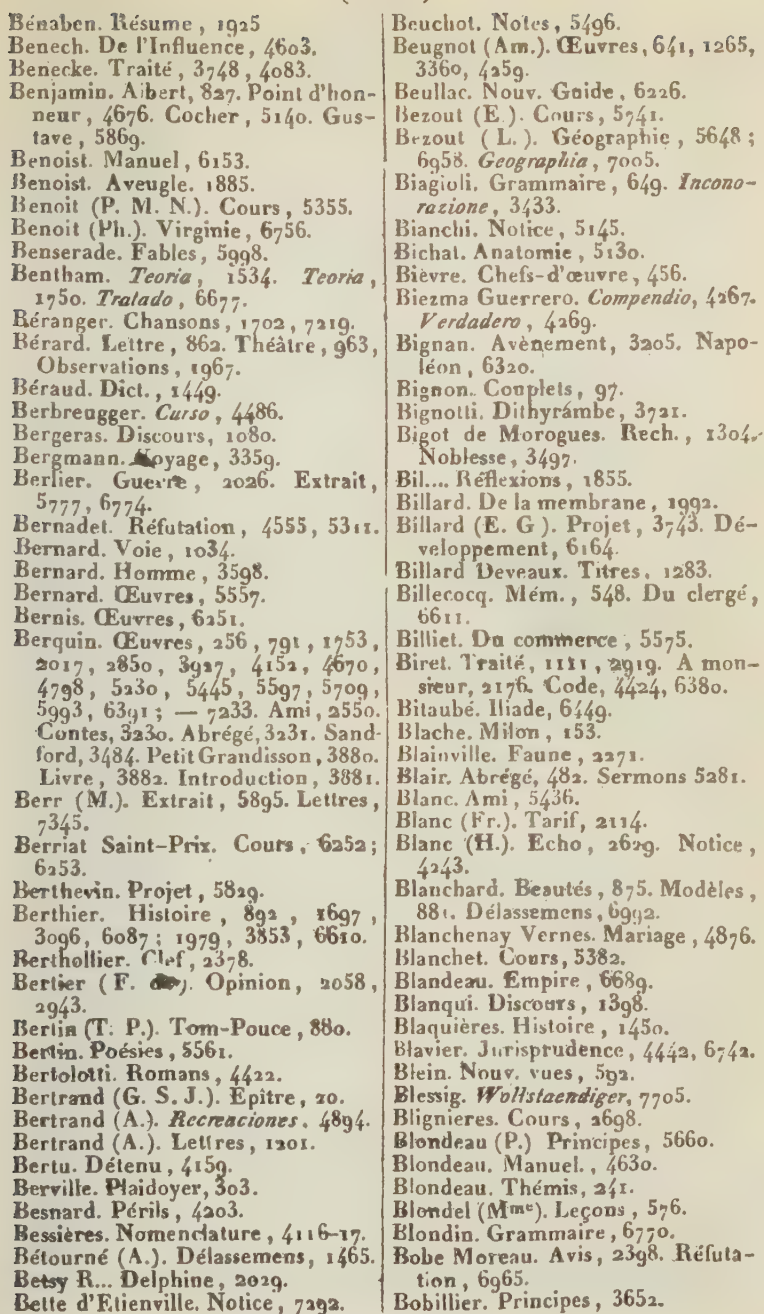 Bénaben. Résume, 1925
Benech. De l'Influence, 4603.
Benecke. Traité, 3748, 4083.
Benjamin. Aibert, 827. Point d'hon-
neur, 4676. Cocher, 5140. Gus-
tave, 5869.
Benoist. Manuel, 6153.
Benoist. Aveugle. 1885.
Benoit (P. M. N.). Cours, 5355.
Benoit (Ph.). Virginie, 6756.
Benserade. Fables, 5998.
Bentham. Teoria, 1534. Teoria,
1750. Tratado, 6677.
Béranger. Chansons, 1702, 7219.
Bérard. Lettre, 862. Théâtre, 963,
Observations, 1967.
Béraud. Dict., 1449.
Berbreugger. Curso, 4486.
Bergeras. Discours, 1080.
Bergmann. Voyage, 3359.
Berlier. Guerre, 2026. Extrait,
5777, 6774.
Bernadet. Réfutation, 4555, 5311.
Bernard. Voie, 1034.
Bernard. Homme, 3598.
Bernard. Œuvres, 5557.
Bernis. Œuvres, 6251.
Berquin. Œuvres, 256, 791, 1753,
2017, 2850, 3927, 4152, 4670,
4798, 5230, 5445, 5597, 5709,
5993, 6391; — 7233. Ami, 2550.
Contes, 3230. Abrégé, 3231. Sand-
ford, 3484. Petit Grandisson, 3880.
Livre, 3882. Introduction, 3881.
Berr (M.). Extrait, 5895. Lettres,
7345.
Berriat Saint-Prix. Cours, 6252;
6253.
Berthevin. Projet, 5829.
Berthier. Histoire, 892, 1697,
3096, 6087; 1979, 3853, 6610.
Berthollier. Clef, 2378.
Bertier (F. Opinion, 2058,
2943.
Bertin (T. P.). Tom-Pouce, 880.
Bertin. Poésies, 5561.
Bertolotti. Romans, 4422.
Bertrand (G. S. J.). Epître, 20.
Bertrand (A.). Recreaciones. 4894.
Bertrand (A.). Lettres, 1201.
Bertu. Détenu, 4159.
Berville. Plaidoyer, 303.
Besnard. Périls, 4203.
Bessières. Nomenclature, 4116-17.
Bétourné (A.). Délassemens, 1465.
Betsy R... Delphine, 2029.
Bette d'Etienville. Notice, 7292.
Beuchot. Notes, 5496.
Beugnot (Am.). Œuvres, 641, 1265,
3360, 4259.
Beullac. Nouv. Guide, 6226.
Bezout (E.). Cours, 5741.
Bezout (L.). Géographie, 5648;
6958. Geographia, 7005.
Biagioli. Grammaire, 649. Incono-
razione, 3433.
Bianchi. Notice, 5145.
Bichat. Anatomie, 5130.
Bièvre. Chefs-d'œuvre, 456.
Biezma Guerrero. Compendio, 4267.
Verdadero, 4269.
Bignan. Avènement, 3205. Napo-
léon, 6320.
Bignon. Couplets, 97.
Bignotti. Dithyrambe, 3721.
Bigot de Morogues. Rech., 1304.
Noblesse, 3497.
Bil.... Réflexions, 1855.
Billard. De la membrane, 1992.
Billard (E. G). Projet, 3743. Dé-
veloppement, 6164.
Billard Deveaux. Titres, 1283.
Billecocq. Mém., 548. Du clergé,
6611.
Billiet. Du commerce, 5575.
Biret. Traité, 1111, 2919. A mon-
sieur, 2176. Code, 4424, 6380.
Bitaubé. Iliade, 6449.
Blache. Milon, 153.
Blainville. Faune, 2271.
Blair. Abrégé, 482. Sermons 5281.
Blanc. Ami, 5436.
Blanc (Fr.). Tarif, 2114.
Blanc (H.). Echo, 2629. Notice,
4243.
Blanchard. Beautés, 875. Modèles,
881. Délassemens, 6992.
Blanchenay Vernes. Mariage, 4876.
Blanchet. Cours, 5382.
Blandeau. Empire, 6689.
Blanqui. Discours, 1398.
Blaquières. Histoire, 1450.
Blavier. Jurisprudence, 4442, 6742.
Blein. Nouv. vues, 592.
Blessig. Wollstaendiger, 7705.
Blignieres. Cours, 2698.
Blondeau (P.) Principes, 5660.
Blondeau. Manuel., 4630.
Blondeau. Thémis, 241.
Blondel (Mme). Leçons, 576.
Blondin. Grammaire, 6770.
Bobe Moreau. Avis, 2398. Réfuta-
tion, 6965.
Bobillier. Principes, 3652.